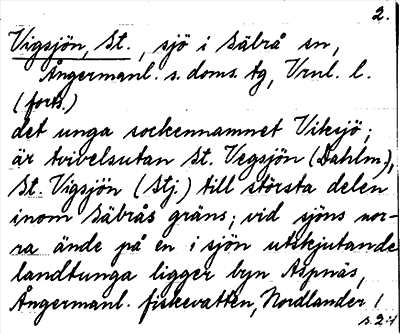 2.
Vigsjön, St., sjö i Säbrå sn,
Ångermanl. s. doms. tg, Vrnl. l.
(forts.)
det unga sockennamnet Viksjö;
är tvivelsutan St. Vegsjön (Dahlm.),
St. Vigsjön (Stj.) till största delen
inom Säbrås gräns; vid sjöns nor-
ra ände på en i sjön utskjutande
landtunga ligger byn Aspnäs,
Ångermanl. fiskevatten, Nordlander 1
s. 24